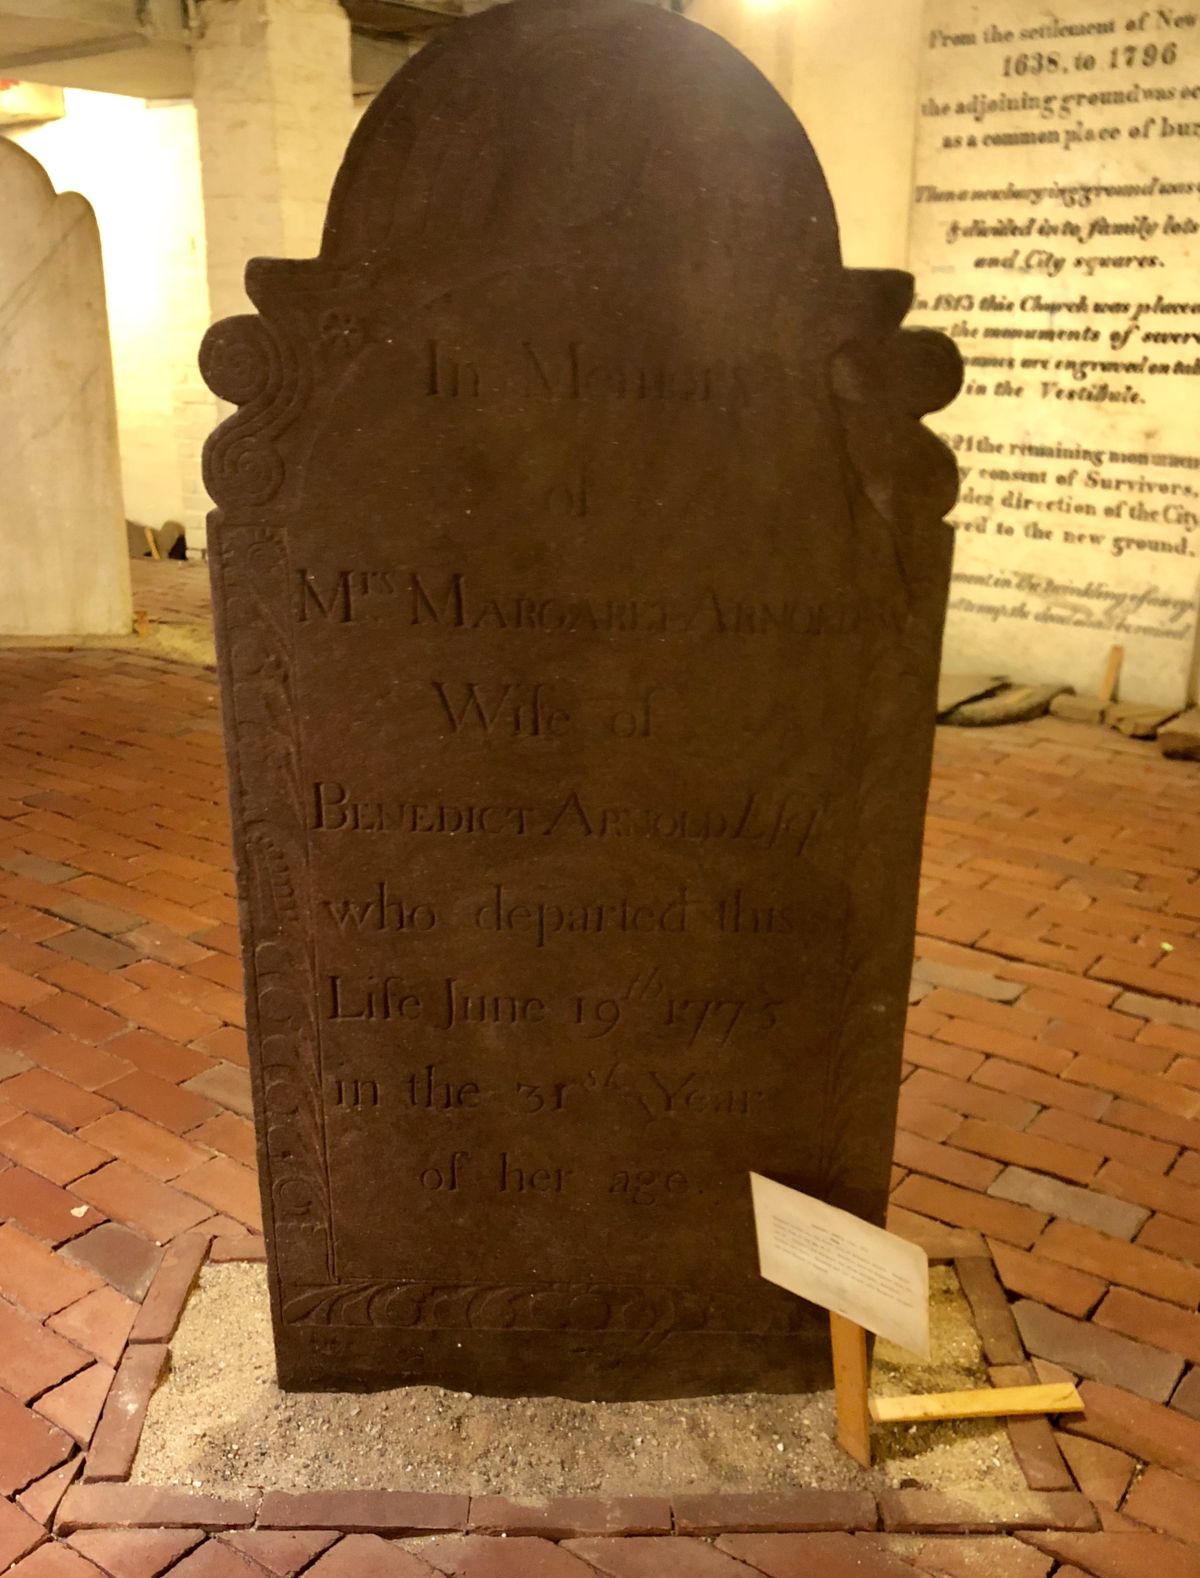 In Memory
of
Mrs MARGARET ARNOLD
Wife of
BENEDICT ARNOLD Esqr
who departed this
Life June 19th 1775
in the 31st Year
of her age.
From the settlement of New
1638, to 1796
the adjoining ground was oc
as a common place of bur
Then a new burying ground was
& divided into family lots
and City squares.
In 1813 this Church was placed
the monuments of severa
names are engraved on tab
in the Vestibule.
21 the remaining monumen
y consent of Survivors,
der direction of the City
ved to the new ground.
ment in the twinkling of an ey